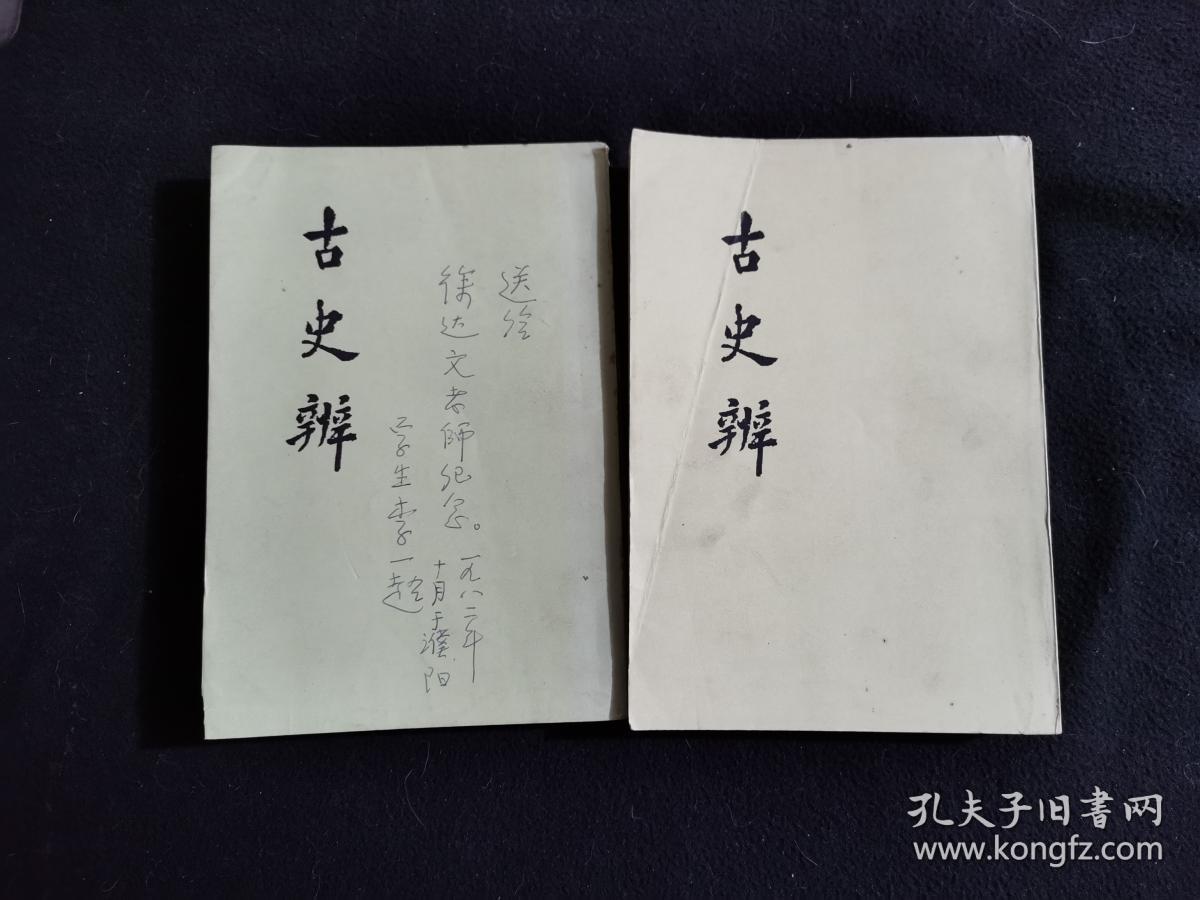 古史辨
送给
徐达文老师纪念。
一九八二年
十月于濮阳
学生李一趁
古史辨
孔夫子旧书网
www.kongfz.com